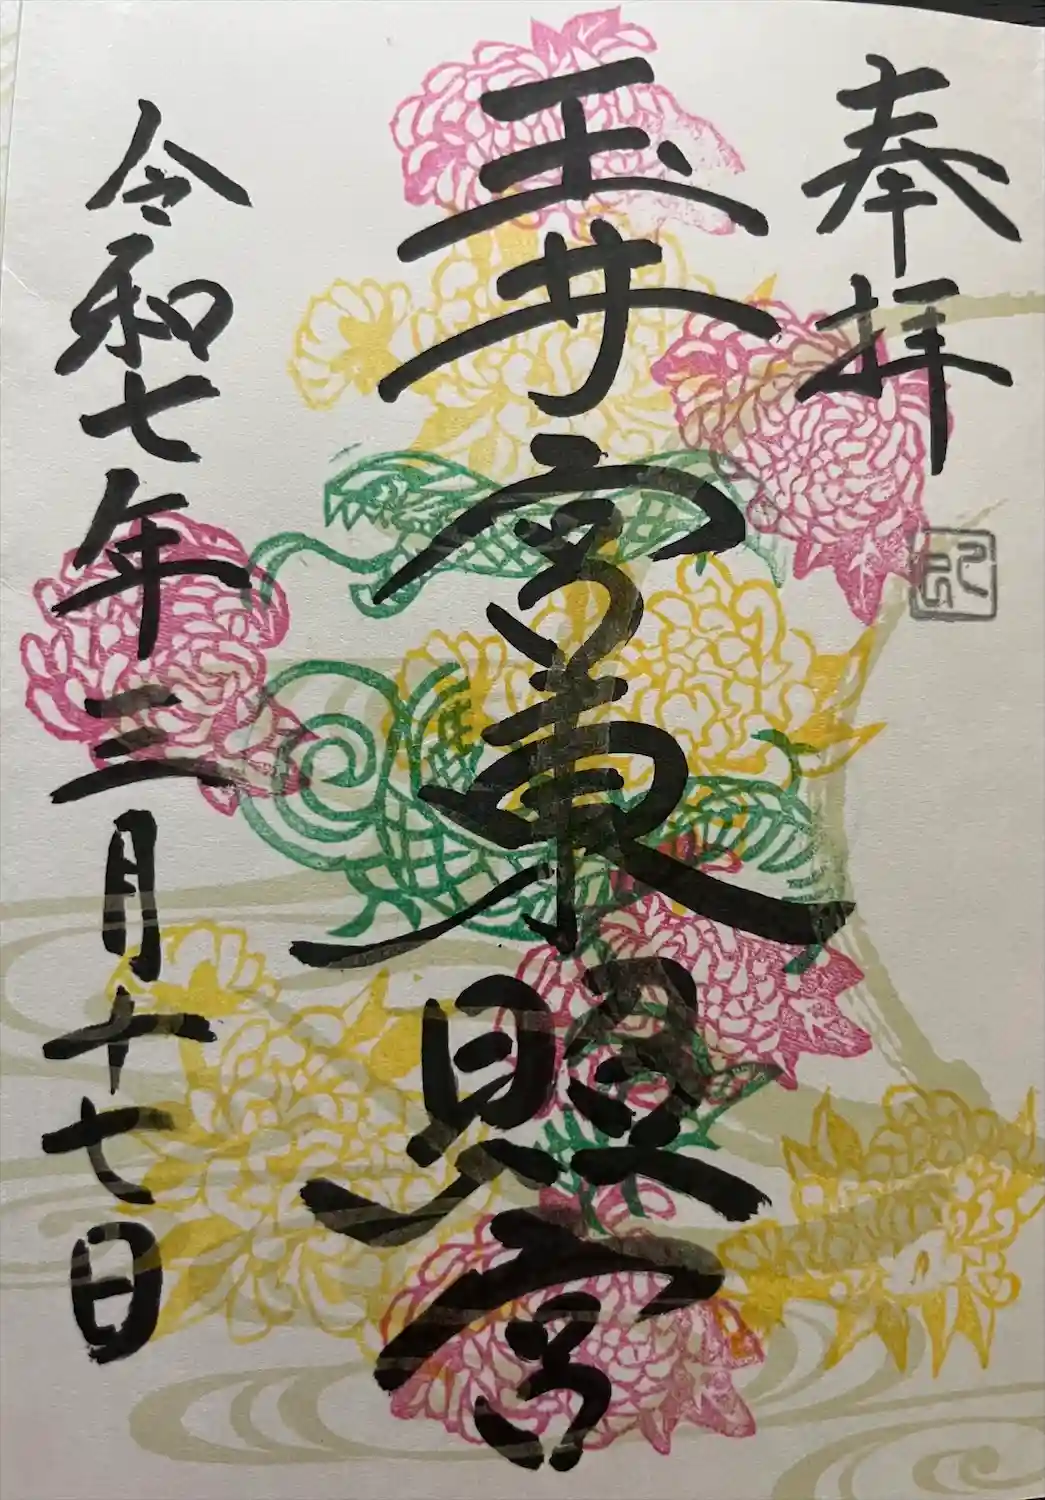 奉拝
玉井宮東照宮
令和七年三月十七日